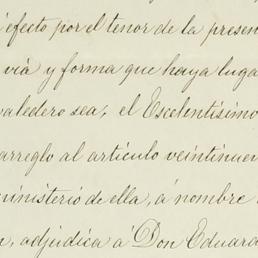 efecto por el tenor de la presen
via y forma que haya luga
valedero sea, el Escelentísimo
arreglo al artículo veintinuev
ministerio de ella, á nombre
, adjudica á Don Eduard